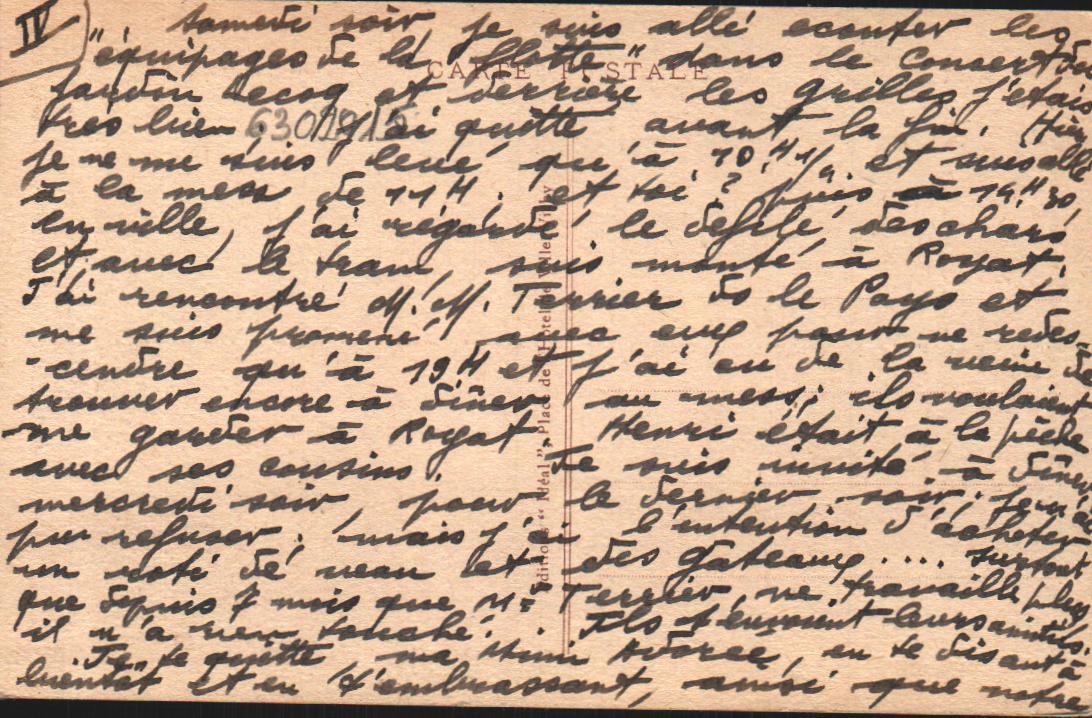 IV
Samedi soir je suis allé ecouter les
"équipages de la flotte" dans le Concert du
CARTE POSTALE
jardin Lecoq et derrière les grilles j'étais
tres bien. J'ai quitté avant la fin. Hier
je ne me suis levé qu'à 10 H 1/2 et suis allé
à la mess de 11 H. et toi ? puis à 14 H 30,
en ville, j'ai régardé le défilé des chars,
et avec le tram, suis monté à Royat.
J'ai rencontré M. M. Terrier ds le Pays et
me suis promené avec eux pour ne redes-
cendre qu'à 19 H et j'ai eu de la veine de
trouver encore à dîner au mess; ils voulaient
me garder à Royat. Henri était à la pêche
avec ses cousins. Je suis invité à dîner
mercredi soir, pour le dernier soir; je n'ai
pu refuser. mais j'ai l'intention d'acheter
un roti de veau et des gateaux .... surtout
que depuis 7 mois que Mr Terrier, ne travaille plus
il n'a rien touché. Ils t'envoient leurs amitiés.
Je te quitte ma Mimi Adorée, en te disant à
bientot et en t'embrassant, ainsi que notre
Editions "Idéal", Place de l'Hôtel de Ville